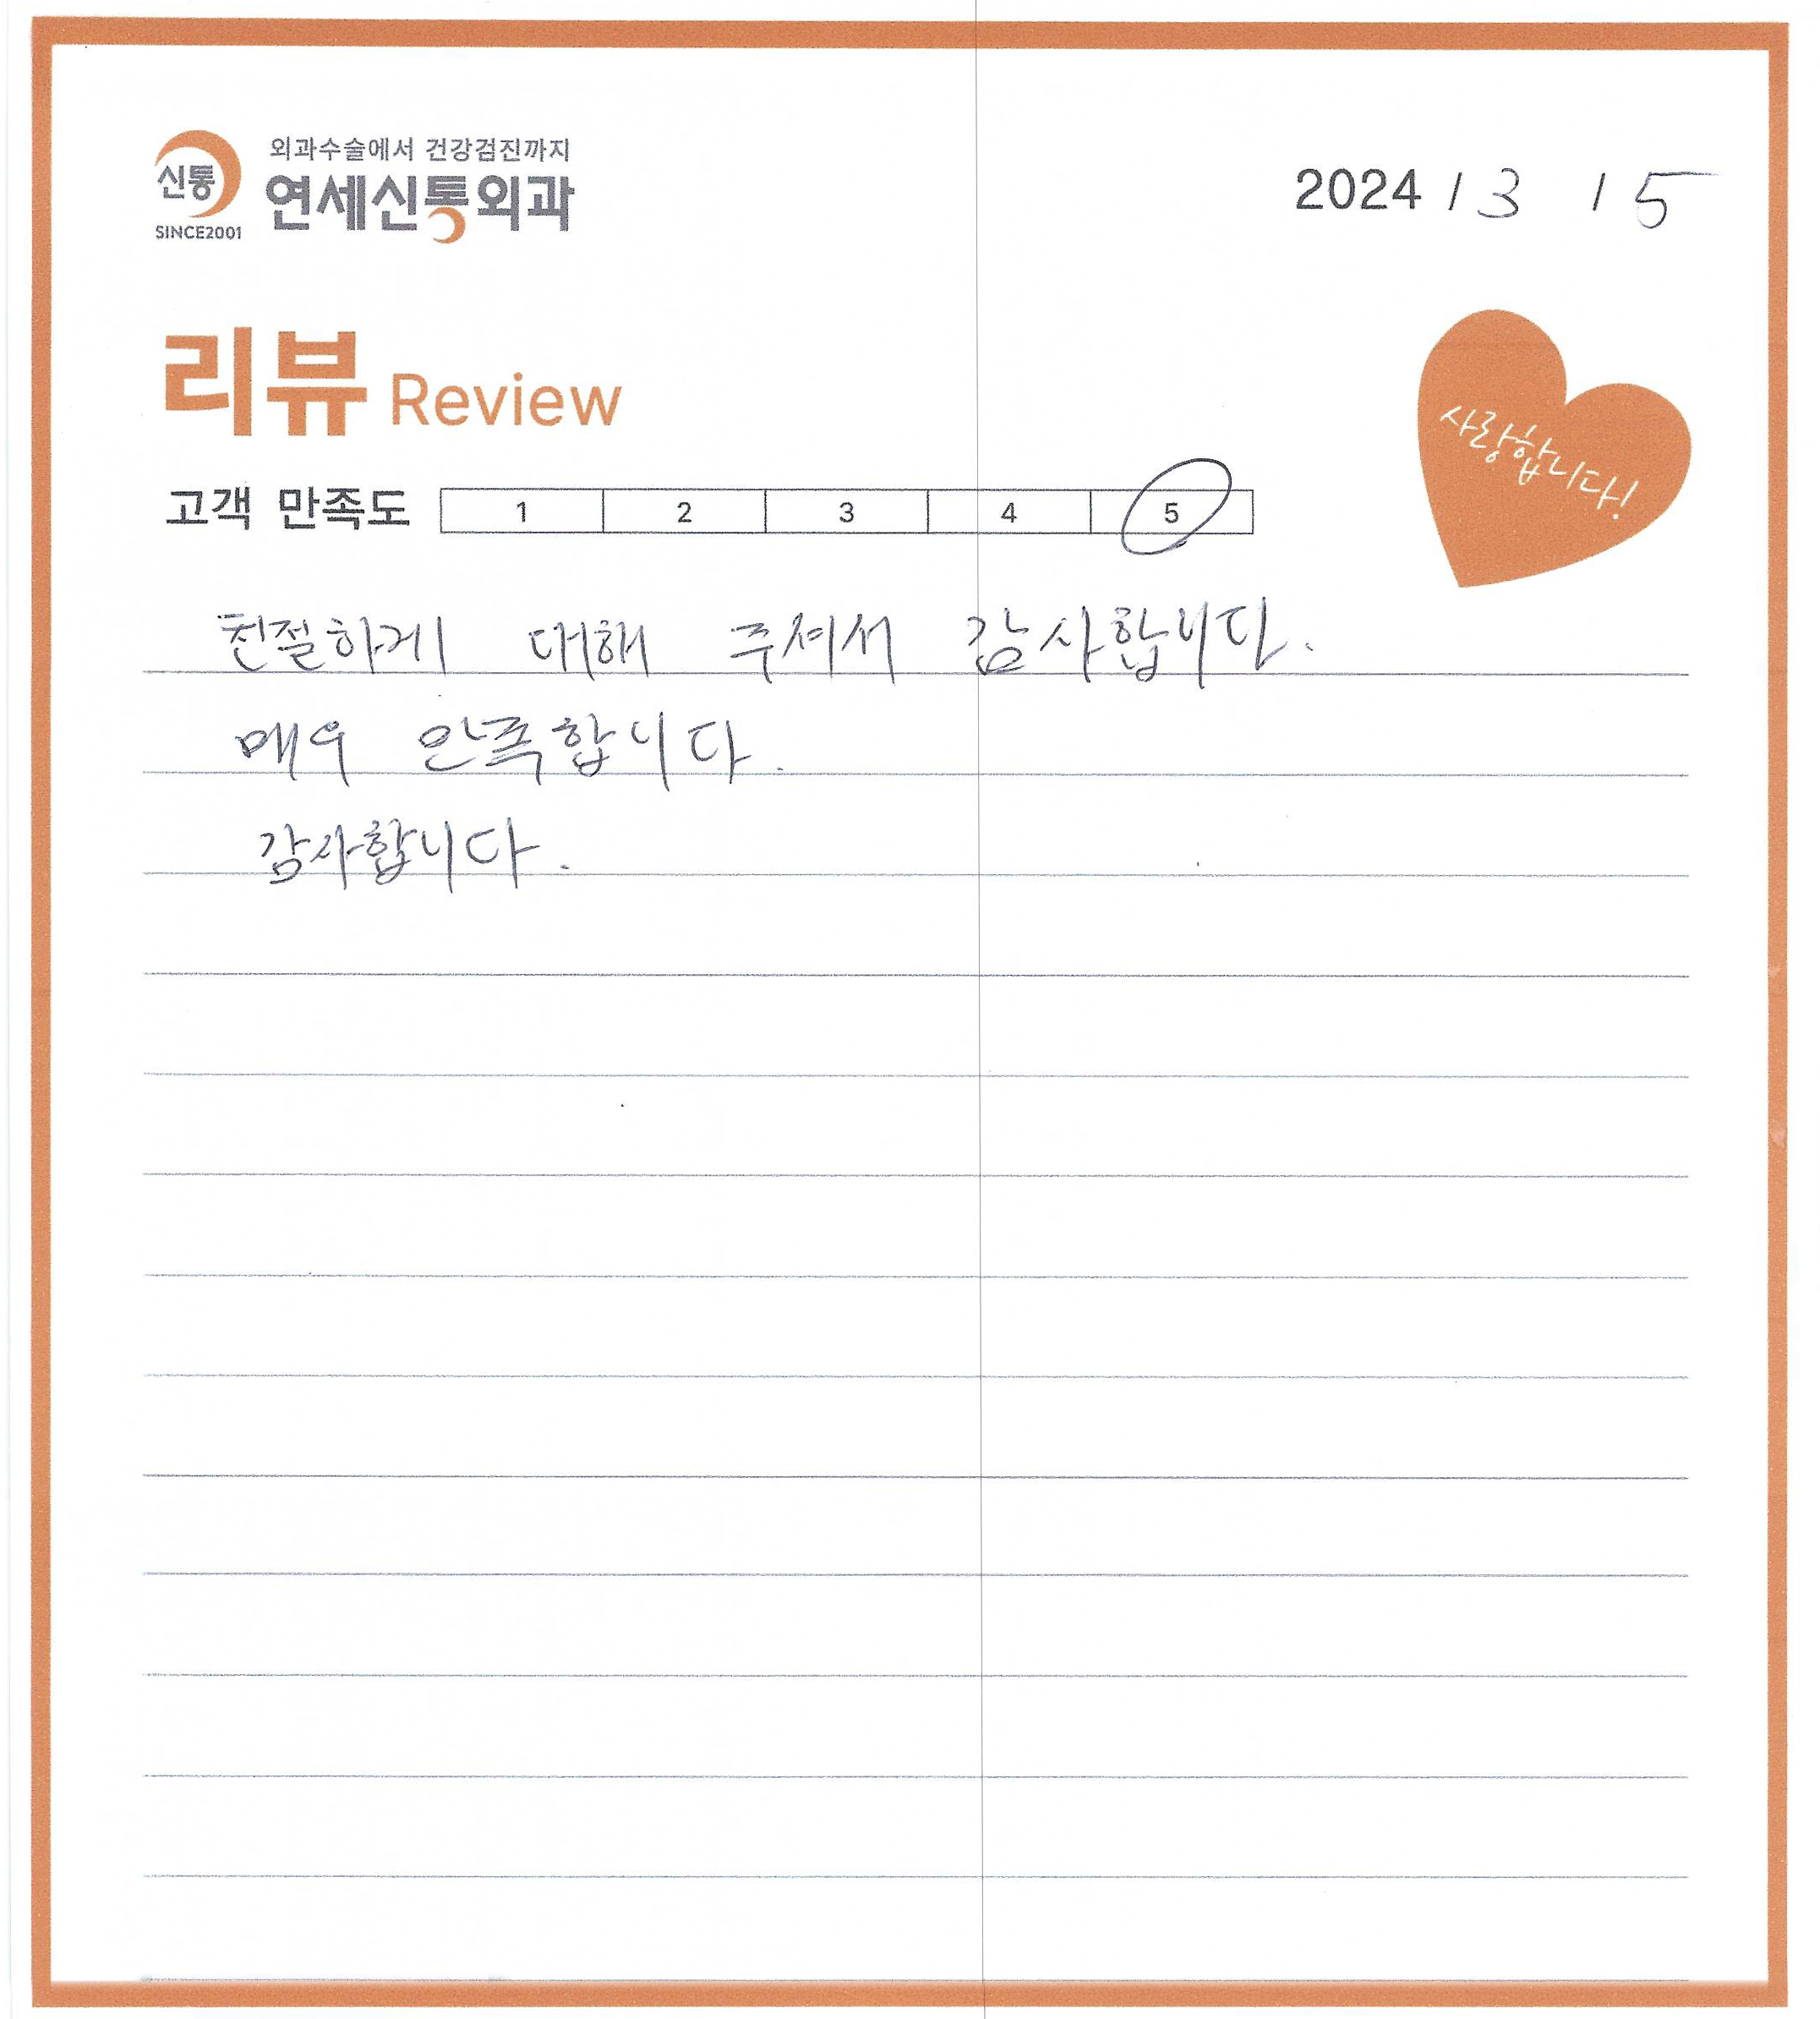 외과수술에서 건강검진까지
신통 연세신통외과
SINCE2001
2024 / 3 / 5
리뷰 Review
사랑합니다!
고객 만족도 1 2 3 4 5
친절하게 대해 주셔서 감사합니다.
매우 만족합니다.
감사합니다.